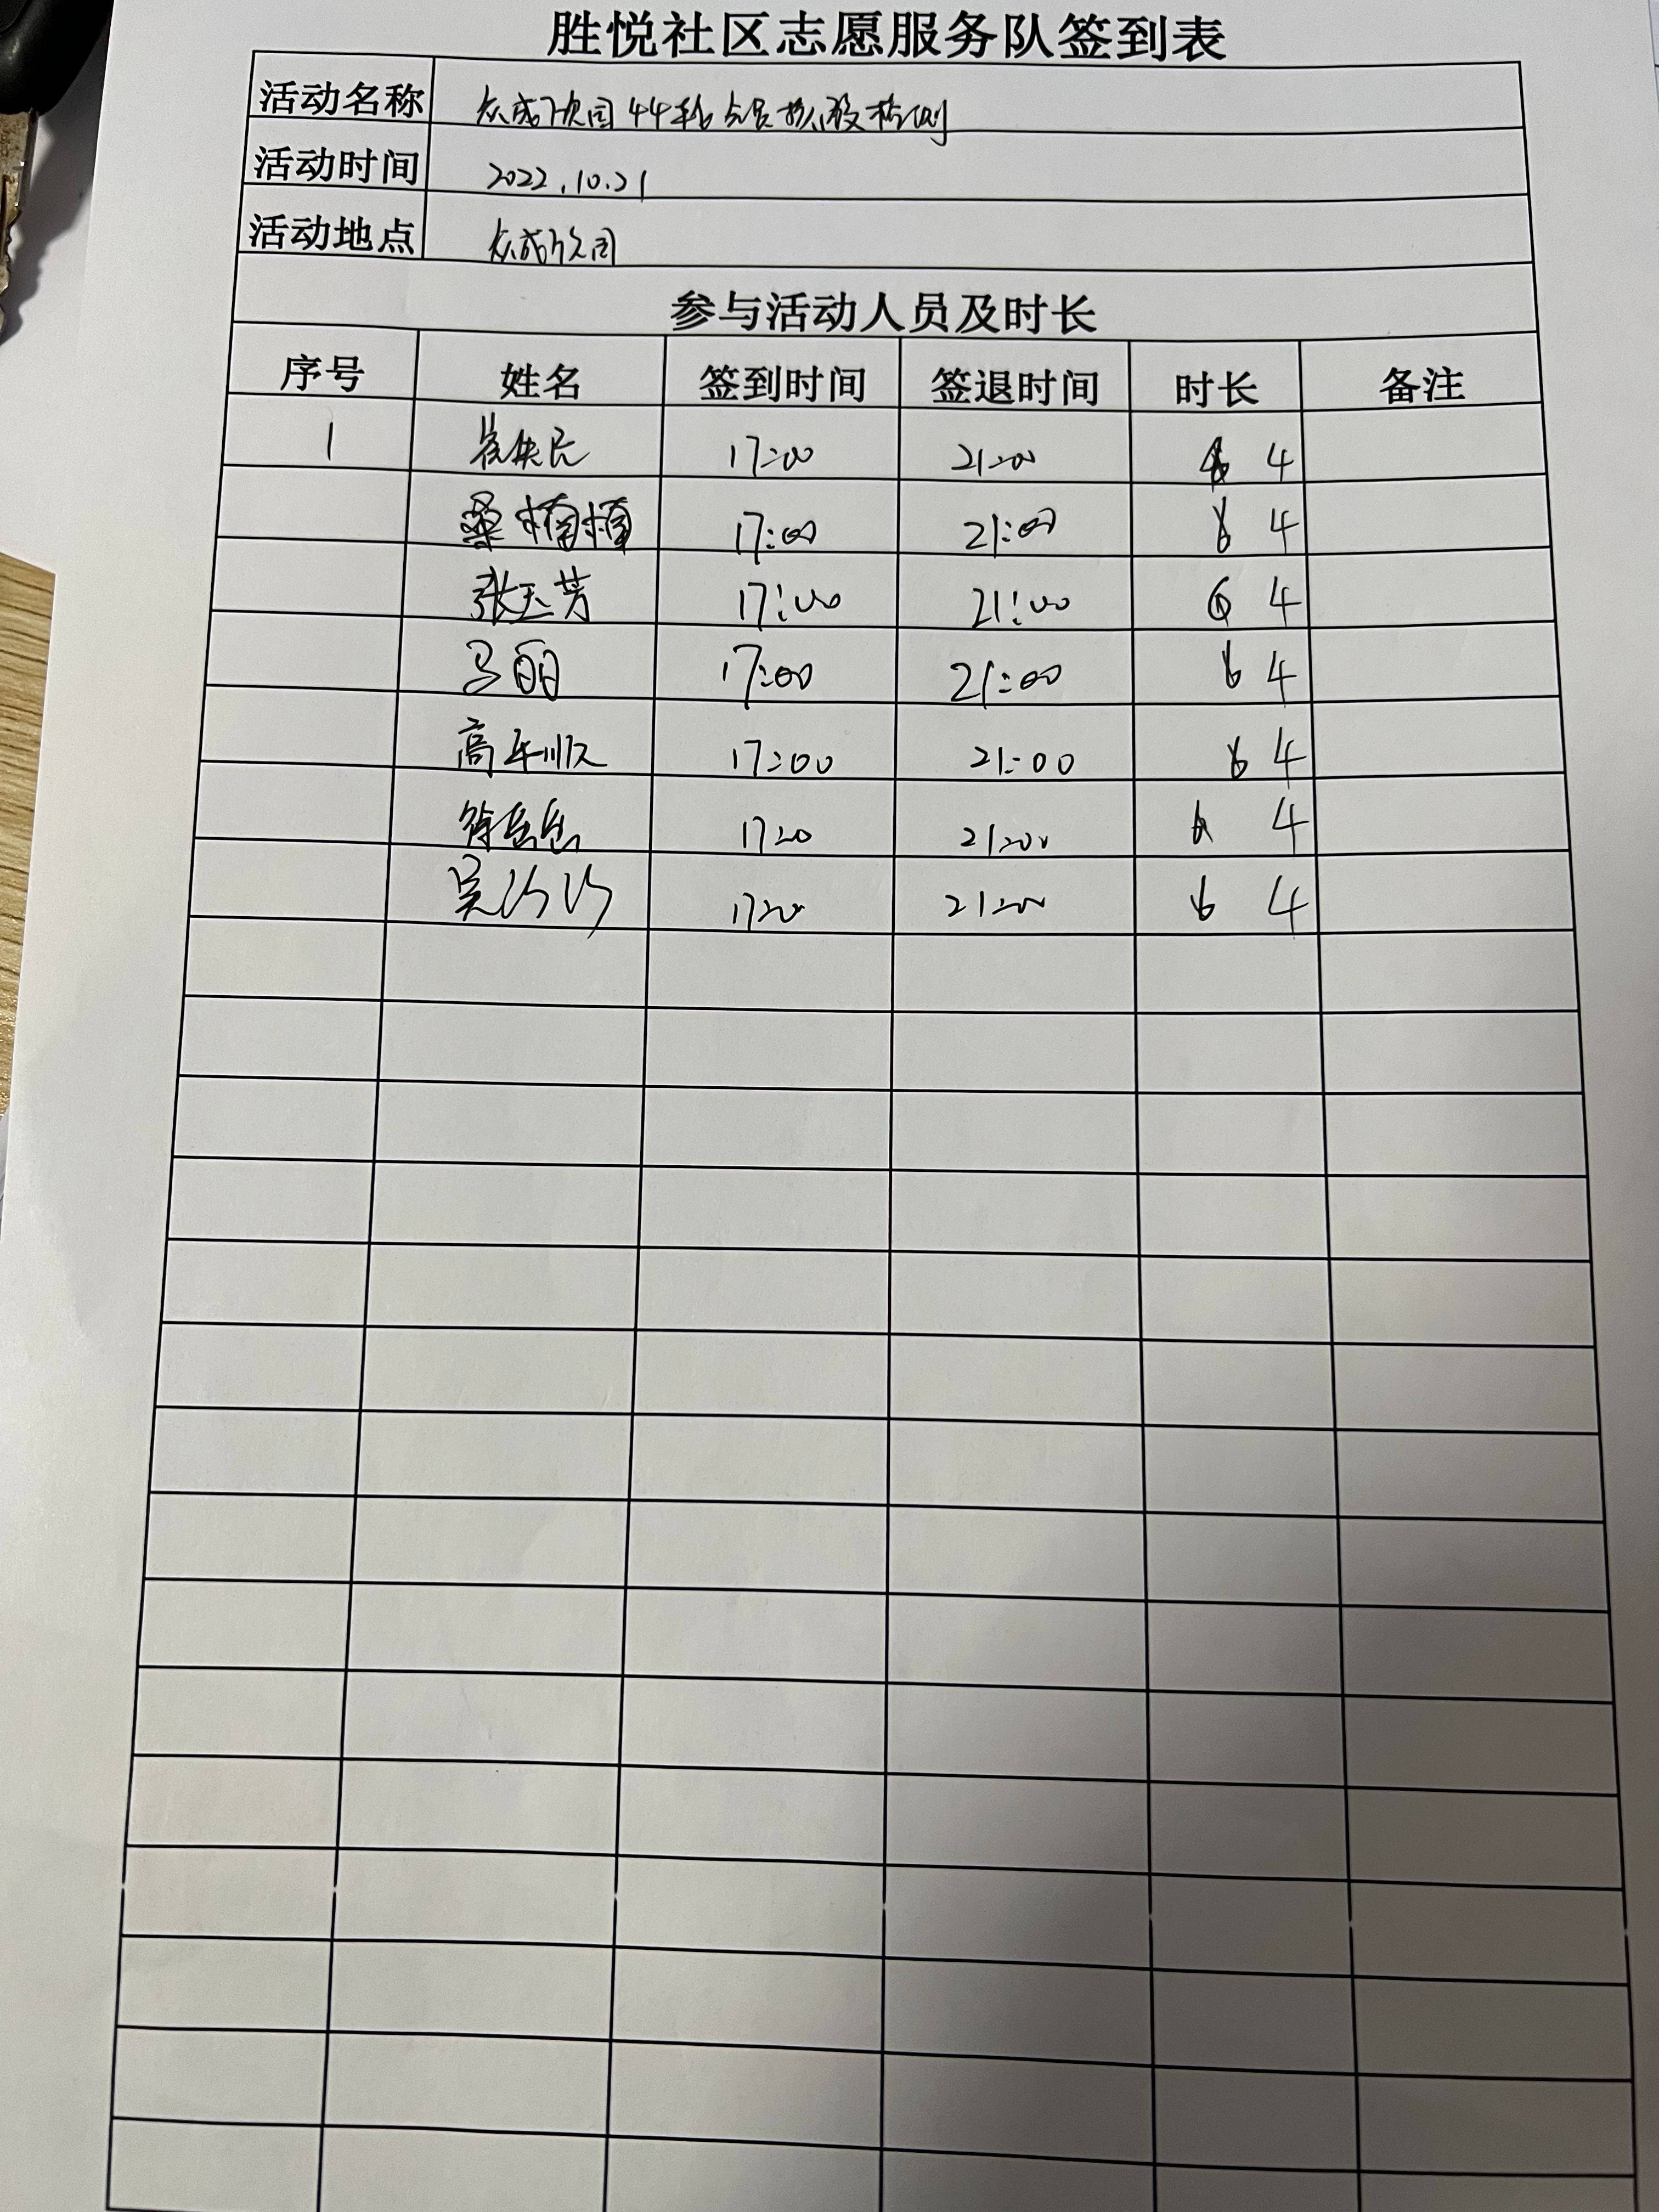 胜悦社区志愿服务队签到表
活动名称 众成 园 44轮全员核酸检测
活动时间 2022.10.21
活动地点 众成 园
参与活动人员及时长
序号 姓名 签到时间 签退时间 时长 备注
1 17:00 21:00 4
桑楠楠 17:00 21:00 4
张玉芳 17:00 21:00 6 4
马丽 17:00 21:00 6 4
高年顺 17:00 21:00 6 4
徐岳岳 17:00 21:00 4
吴汐汐 17:00 21:00 6 4